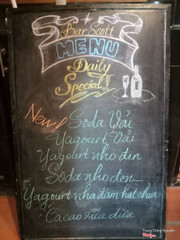 Bar Scott
MENU
Daily
Special!!
New!
Soda Vải
Yagourt Vải
Yagourt nho đen
Soda nho đen
Yagourt nha đam hạt chia
Cacao sữa dừa